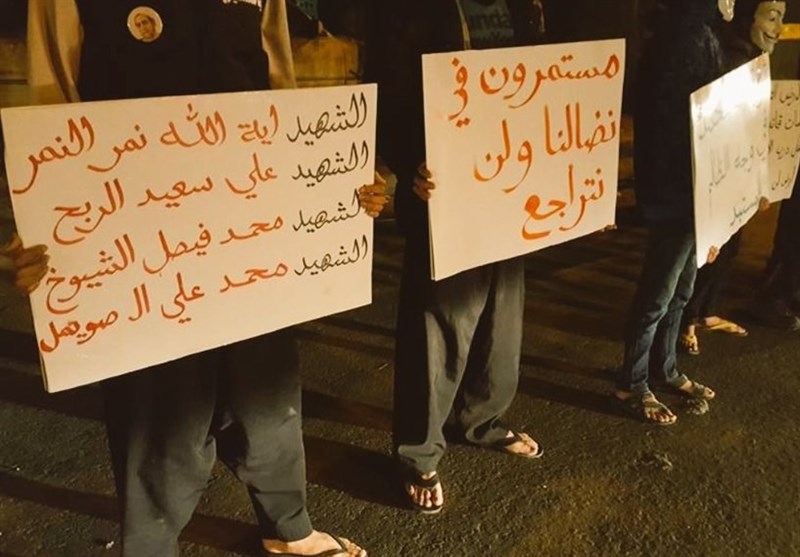 الشهيد اية الله نمر النمر
الشهيد علي سعيد الربح
الشهيد محمد فيصل الشيوخ
الشهيد محمد علي ال صويمل
مستمرون في
نضالنا ولن
نتراجع
وجه الظالم
المستبد